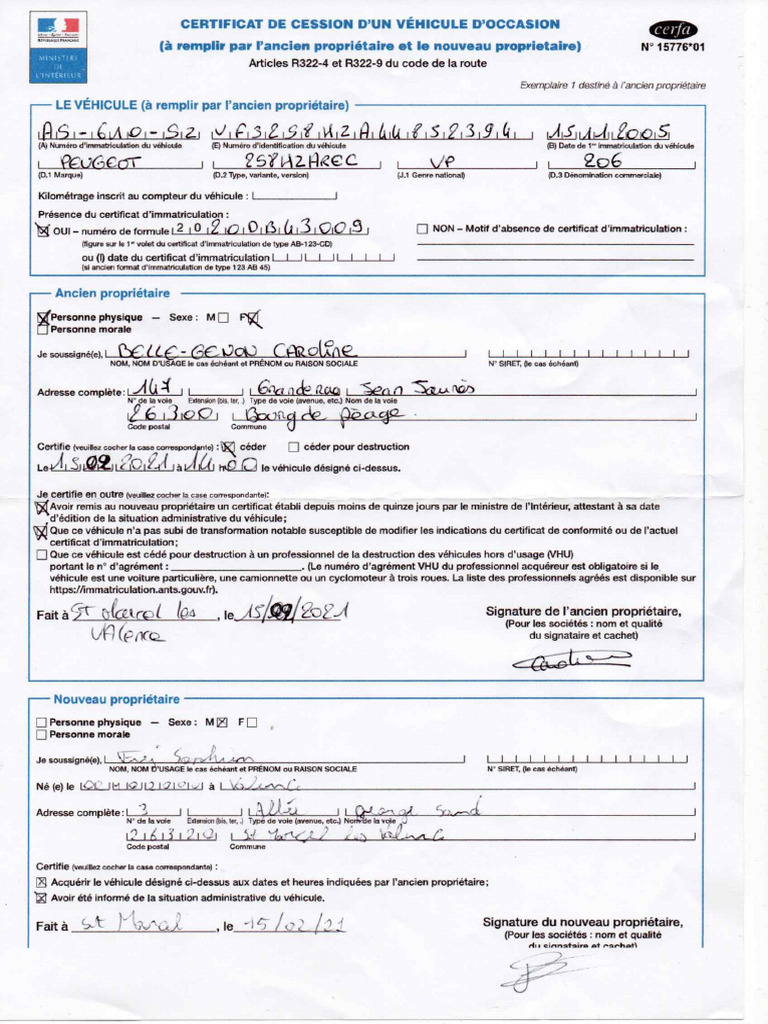 CERTIFICAT DE CESSION D'UN VÉHICULE D'OCCASION
(à remplir par l'ancien propriétaire et le nouveau proprietaire)
Articles R322-4 et R322-9 du code de la route
cerfa
N° 15776*01
MINISTÈRE
DE
L'INTÉRIEUR
Exemplaire 1 destiné à l'ancien propriétaire
LE VÉHICULE (à remplir par l'ancien propriétaire)
AS-610-SZ VF3258HZA44852394 15112005
(A) Numéro d'immatriculation du véhicule (E) Numéro d'identification du véhicule (B) Date de 1re immatriculation du véhicule
PEUGEOT 258HZAREC VP 206
(D.1 Marque) (D.2 Type, variante, version) (J.1 Genre national) (D.3 Dénomination commerciale)
Kilométrage inscrit au compteur du véhicule :
Présence du certificat d'immatriculation :
OUI – numéro de formule 2020DB43009 NON – Motif d'absence de certificat d'immatriculation :
(figure sur le 1er volet du certificat d'immatriculation de type AB-123-CD)
ou (I) date du certificat d'immatriculation
(si ancien format d'immatriculation de type 123 AB 45)
Ancien propriétaire
Personne physique – Sexe : M F
Personne morale
Je soussigné(e), BELLE-GENON CAROLINE
NOM, NOM D'USAGE le cas échéant et PRÉNOM ou RAISON SOCIALE N° SIRET, (le cas échéant)
Adresse complète : 147 Grande rue Jean Jaurès
N° de la voie Extension (bis, ter, .) Type de voie (avenue, etc.) Nom de la voie
26300 Bourg de Péage
Code postal Commune
Certifie (veuillez cocher la case correspondante) : céder céder pour destruction
Le 15 02 2021 à 14 h 00 le véhicule désigné ci-dessus.
Je certifie en outre (veuillez cocher la case correspondante):
Avoir remis au nouveau propriétaire un certificat établi depuis moins de quinze jours par le ministre de l'Intérieur, attestant à sa date
d'édition de la situation administrative du véhicule;
Que ce véhicule n'a pas subi de transformation notable susceptible de modifier les indications du certificat de conformité ou de l'actuel
certificat d'immatriculation;
Que ce véhicule est cédé pour destruction à un professionnel de la destruction des véhicules hors d'usage (VHU)
portant le n° d'agrément : . (Le numéro d'agrément VHU du professionnel acquéreur est obligatoire si le
véhicule est une voiture particulière, une camionnette ou un cyclomoteur à trois roues. La liste des professionnels agréés est disponible sur
https://immatriculation.ants.gouv.fr).
Fait à St Marcel les , le 15/02/2021 Signature de l'ancien propriétaire,
VAlence (Pour les sociétés : nom et qualité
du signataire et cachet)
Nouveau propriétaire
Personne physique – Sexe : M F
Personne morale
Je soussigné(e),
NOM, NOM D'USAGE le cas échéant et PRÉNOM ou RAISON SOCIALE N° SIRET, (le cas échéant)
Né (e) le à Valence
Adresse complète : 3 Allée George Sand
N° de la voie Extension (bis, ter, .) Type de voie (avenue, etc.) Nom de la voie
26320 St Marcel les Valence
Code postal Commune
Certifie (veuillez cocher la case correspondante) :
Acquérir le véhicule désigné ci-dessus aux dates et heures indiquées par l'ancien propriétaire;
Avoir été informé de la situation administrative du véhicule.
Fait à St Marcel , le 15/02/21 Signature du nouveau propriétaire,
(Pour les sociétés : nom et qualité
du signataire et cachet)